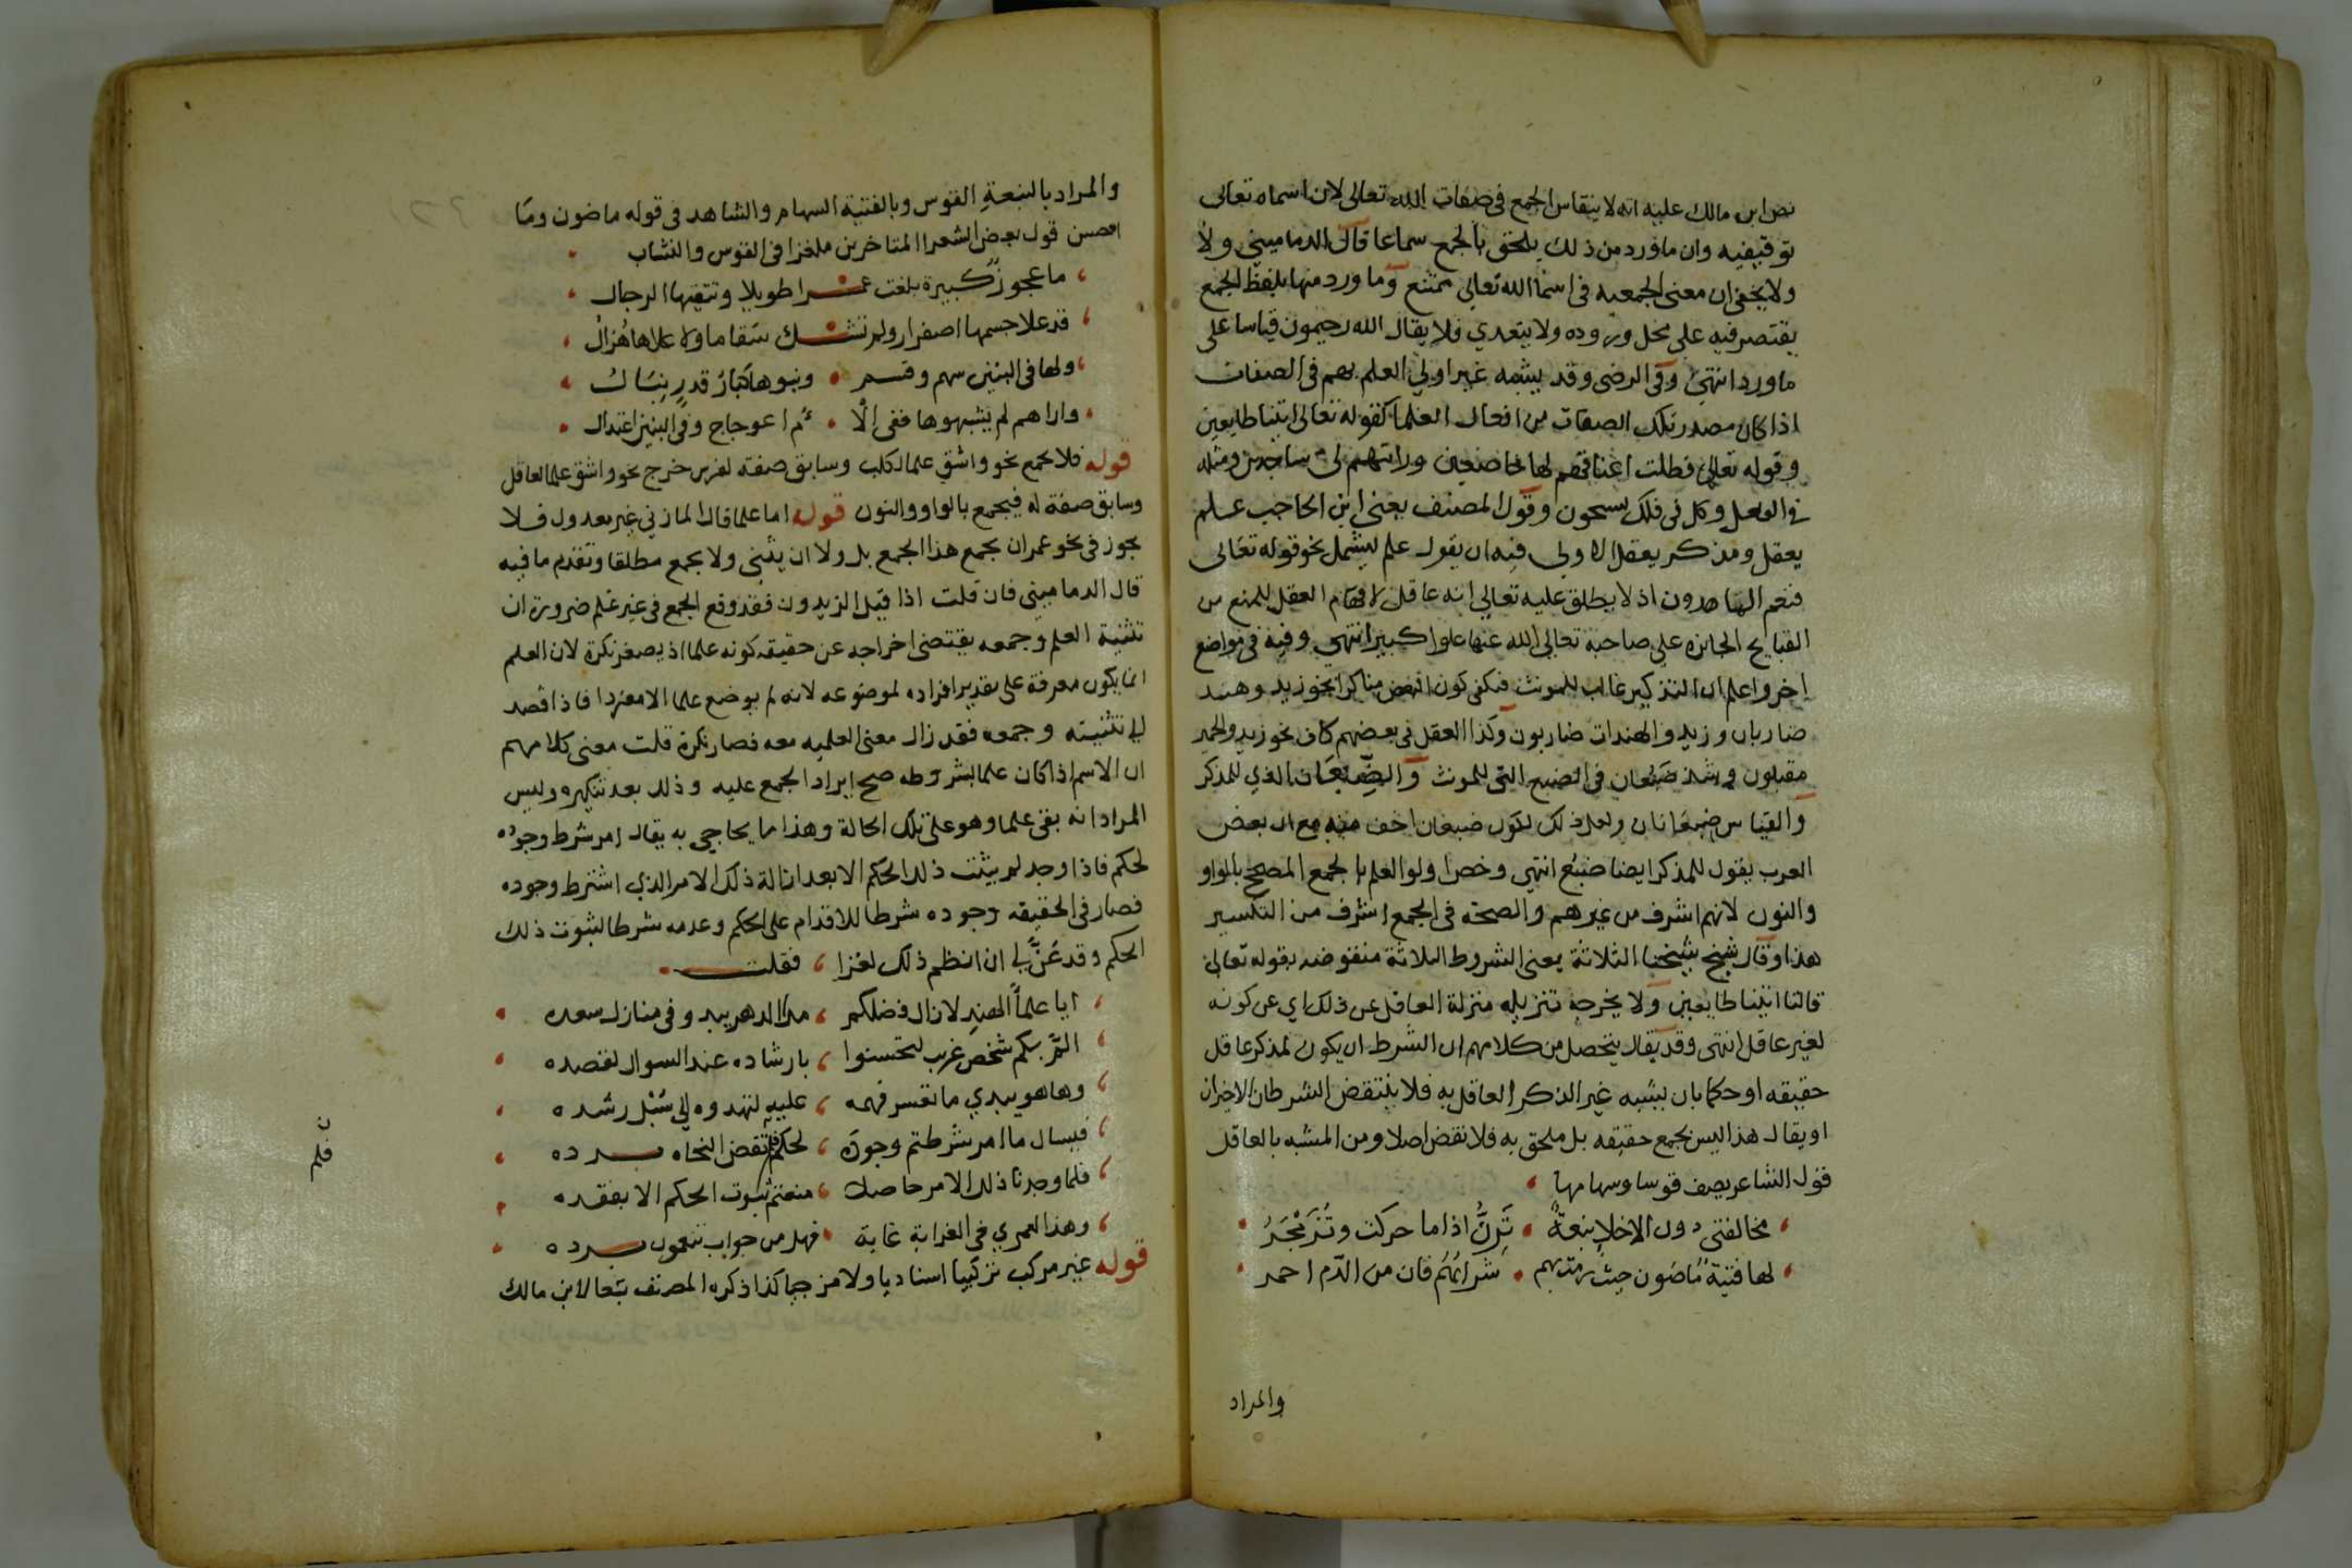 نص ابن مالك عليه انه لا ينقاس الجمع في صفات الله تعالى لان اسماه تعالى
توقيفيه وان ما ورد من ذلك يلحق بالجمع سماعا قال الدماميني ولا
ولا يخفى ان معنى الجمعيه في اسما الله تعالى ممتنع وما ورد منها بلفظ الجمع
يقتصر فيه على محل وروده ولا يتعدي فلا يقال الله رحيمون قياسا على
ما ورد انتهى وفي الرضى وقد يشبه غير اولي العلم بهم في الصفات
اذا كان مصدر تلك الصفات من افعال العلما كقوله تعالى اتينا طايعين
وقوله تعالى فظلت اعناقهم لها خاضعين ورايتهم لى ساجدين ومثله
في الفعل وكل فى فلك يسبحون وقول المصنف يعنى ابن الحاجب علم
يعقل ومذكر يعقل الاولى فيه ان يقول علم ليشمل نحو قوله تعالى
فنعم الماهدون اذ لا يطلق عليه تعالى انه عاقل لافهام العقل للمنع من
القبايح الجائزه على صاحبه تعالى الله عنها علوا كبيرا انتهى وفيه في مواضع
اخر واعلم ان التذكير غالب للمونث فيكفى كون البعض مذكرا نحو زيد وهند
ضاربان وزيد والهندات ضاربون وكذا العقل في بعضهم كاف نحو زيد والحمير
مقبلون وشذ ضبعان في الضبع التى للمونث والضبعان الذي للمذكر
والقياس ضبعانان ولعل ذلك لكون ضبعان اخف منه مع ان بعض
العرب يقول للمذكر ايضا ضبع انتهى وخص اولو العلم بالجمع المصحح بالواو
والنون لانهم اشرف من غيرهم والصحة في الجمع اشرف من التكسير
هذا وقال شيخ شيخنا الثلاثة يعنى الشروط الثلاثة منقوضه بقوله تعالى
قالتا اتينا طايعين ولا يخرجه تنزيله منزلة العاقل عن ذلك اي عن كونه
لغير عاقل انتهى وقد يقال يتحصل من كلامهم ان الشرط ان يكون لمذكر عاقل
حقيقه او حكما بان يشبه غير الذكر العاقل به فلا ينتقض الشرطان الاخيران
او يقال هذا ليس بجمع حقيقه بل ملحق به فلا نقض اصلا ومن المشبه بالعاقل
قول الشاعر يصف قوسا وسهامها
مخالفتى دون الاخلا نبعة ترن اذا ما حركت وتزمجر
لها فتية ماضون حيث رمت بهم شرابهم قان من الدم احمر
والمراد
والمراد بالنبعة القوس وبالفتية السهام والشاهد فى قوله ماضون وما
احسن قول بعض الشعرا المتاخرين ملغزا فى القوس والنشاب
ما عجوز كبيرة بلغت عمرا طويلا وتتقيها الرجال
قد علا جسمها اصفرار ولم تشك سقاما ولا علاها هزال
ولها فى البنين سهم وقسم وبنوها كبار قدر نبال
واراها لم يشبهوها ففى الا م اعوجاج وفى البنين اعتدال
قوله فلا يجمع نحو واشق علما لكلب وسابق صفة لفرس خرج نحو واشق علما لعاقل
وسابق صفة له فيجمع بالواو والنون قوله اما علما قال المازني غير معدول فلا
يجوز فى نحو عمر ان يجمع هذا الجمع بل ولا ان يثنى ولا يجمع مطلقا وتقدم ما فيه
قال الدماميني فان قلت اذا قيل الزيدون فقد وقع الجمع فى غير علم ضرورة ان
تثنية العلم وجمعه يقتضى اخراجه عن حقيقه كونه علما اذ يصير نكرة لان العلم
انما يكون معرفة على تقدير افراده لموضوعه لانه لم يوضع علما الا مفردا فاذا قصد
الى تثنيته وجمعه فقد زال معنى العلميه معه فصار نكرة قلت معنى كلامهم
ان الاسم اذا كان علما بشروطه صح ايراد الجمع عليه وذلك بعد تنكيره وليس
المراد انه بقى علما وهو على تلك الحالة وهذا ما يحاجى به يقال امر شرط وجوده
لحكم فاذا وجد لم يثبت ذلك الحكم الا بعد ازالة ذلك الامر الذي اشترط وجوده
فصار فى الحقيقه وجوده شرطا للاقدام على الحكم وعدمه شرطا لثبوت ذلك
الحكم وقد عن لي ان انظم ذلك لغزا فقلت
ايا علما الهند لا زال فضلكم مدا الدهر يبدو في منازل سعده
الم بكم شخص غريب لتحسنوا بارشاده عند السوال لقصده
وها هو يبدي ما تعسر فهمه عليه لتهدوه الى سبل رشده
فيسال ما امر شرطتم وجوده لحكم فلم تقض النحاه برده
فلما وجدنا ذلك الامر حاصلا منعتم ثبوت الحكم الا بفقده
وهذا لعمري فى الغرابة غاية فهل من جواب تنعمون برده
قوله غير مركب تركيبا اسناديا ولا مزجيا كذا ذكره المصنف تبعا لابن مالك
ن
فلم